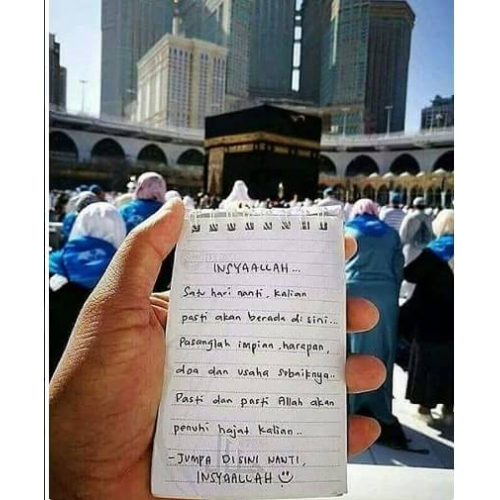 INSYAALLAH...
Satu hari nanti, kalian
pasti akan berada di sini...
Pasanglah impian, harapan,
doa dan usaha sebaiknya..
Pasti dan pasti Allah akan
penuhi hajat kalian..
-JUMPA DISINI NANTI,
INSYAALLAH